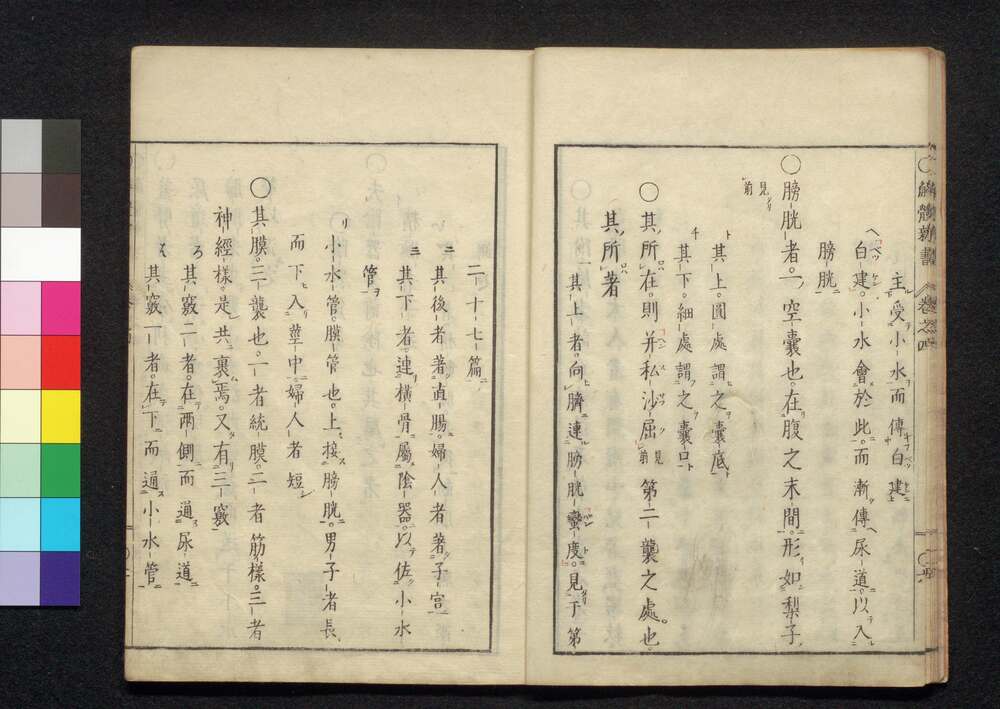 主受小水而傳白建
ヘ白建小水會於此而漸傳尿道以入
膀胱
○膀胱者一空囊也在腹之末間形如梨子
見前
ト其上圓處謂之囊底
チ其下細處謂之囊口
○其所在則并私沙屈見前第二襲之處也
其所著
其上者向臍連膀胱蠻度見于第
二十七篇
ニ其後者著直腸婦人者著子宮
ニ其下者連橫骨屬陰器以佐小水
管
リ小水管膜管也上接膀胱男子者長
而下入莖中婦人者短
○其膜三襲也一者統膜二者筋樣三者
神經樣是共裹焉又有三竅
ろ其竅二者在兩側而通尿道
其竅一者在下而通小水管
解體新書 卷之四